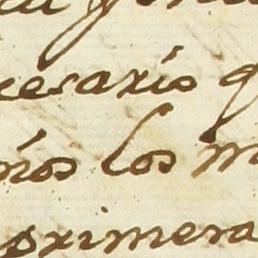 cesario q
ños los m
primera